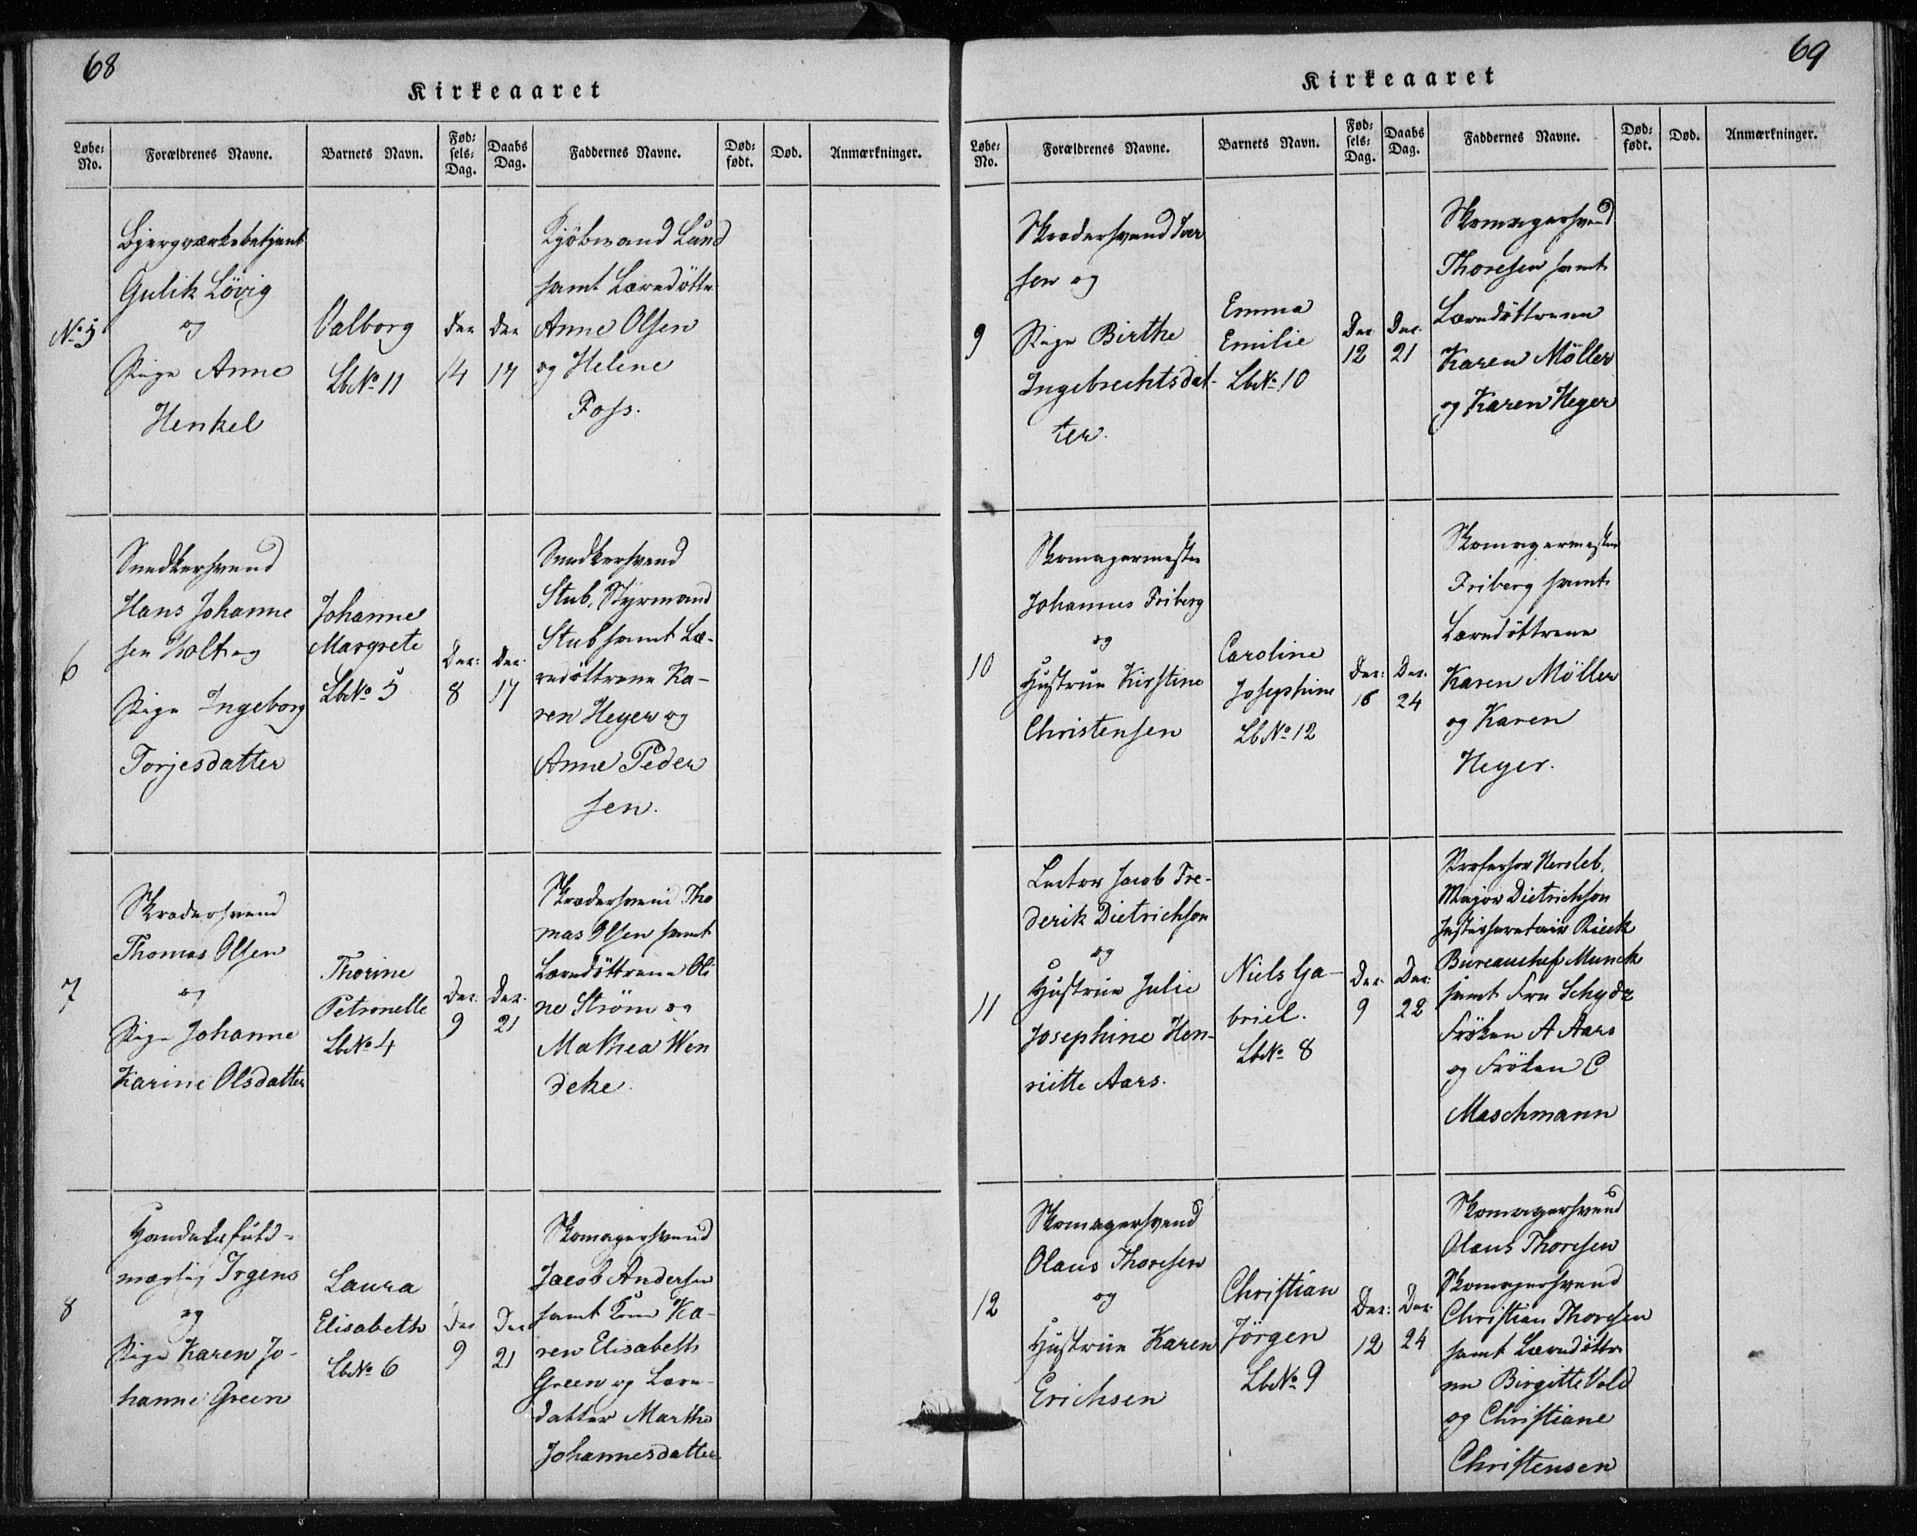 68
Kirkeaaret
Løbe-No.
Forældrenes Navne.
Barnets Navn.
Fødsels-Dag.
Daabs Dag.
Faddernes Navne.
Dødfødt.
Død.
Anmærkninger.
No 5
Bjergværksbetjent
Gulik Lövig
og
Pige Anne
Henkel
Valborg
Lb No 11
Dec
14
Dec
17
Kjöbmand Lund
samt Læredøttr
Anne Olsen
og Helene
Foss.
6
Snedkersvend
Hans Johanne
sen Holt og
Pige Ingeborg
Torjesdatter
Johanne
Margrete
Lb No 5
Dec:
8
Dec.
17
Snedkersvend
Stub, Styrmand
Stub samt Læ-
redøttrene Ka-
ren Heyer og
Anne Peder
sen.
7
Skredersvend
Thomas Olsen
og
Pige Johanne
Karine Olsdatter
Thorine
Petronelle
Lb No 4
Dec.
9
Dec.
21
Skredersvend Tho
mas Olsen samt
Læredöttrene Oli
ne Strøm og
Mathea Wen
deke.
8
Handelsfuld-
mægtig Irgens
og
Pige Karen Jo-
hanne Green
Laura
Elisabeth
Lb No 6
Dec
9
Dec
21
Skomagersvend
Jacob Andersen
samt Kone Ka-
ren Elisabeth
Green og Lære-
datter Marthe
Johannesdatter
69
Kirkeaaret
Løbe-No.
Forældrenes Navne.
Barnets Navn.
Fødsels-Dag.
Daabs Dag.
Faddernes Navne.
Dødfødt.
Død.
Anmærkninger.
9
Skredersvend Iver
sen og
Pige Birthe
Ingebrechtsdat-
ter.
Emma
Emilie
Lb No 10
Dec
12
Dec.
21
Skomagersvend
Thoresen samt
Læredöttrene
Karen Möller
og Karen Heyer
10
Skomagermester
Johannes Friberg
og
Hustrue Kirstine
Christensen
Caroline
Josephine
Lb No 12
Dec:
16
Dec.
24
Skomagermester
Friberg samt
Læredöttrene
Karen Möller
og Karen
Heyer.
11
Lector Jacob Fre-
derik Dietrichson
og
Hustrue Julie
Josephine Hen-
riette Aars.
Niels Ga-
briel.
Lb No 8
Dec.
9
Dec:
22
Professor Hersleb,
Major Dietrichson
Justissecretair Rieck
Bureauchef Munch
samt Fru Schydz
Fröken A Aars
og Fröken C
Maschmann
12
Skomagersvend
Olaus Thoresen
og
Hustrue Karen
Erichsen
Christian
Jörgen
Lb No 9
Dec:
12
Dec.
24
Skomagersvend
Olaus Thoresen
Skomagersvend
Christian Thoresen
samt Læredöttre
ne Birgitte Vold
og Christiane
Christensen